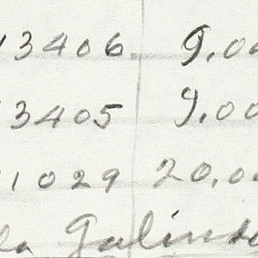 13406 9.00
3405 9.00
1029 20.00
la Galindo